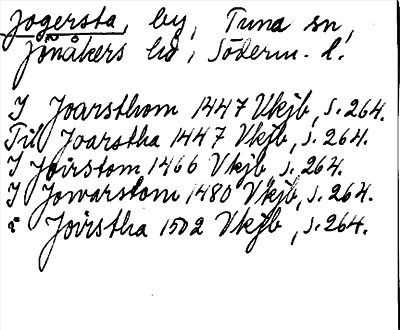 Jogersta, by, Tuna sn,
Jönåkers hd, Söderm. l.
I Joarsthom 1447 Vkjb, s. 264.
Till Joarstha 1447 Vkjb, s. 264.
I Joirstom 1466 Vkjb, s. 264.
I Jowarstom 1480 Vkjb, s. 264.
i Joirstha 1502 Vkjb, s. 264.